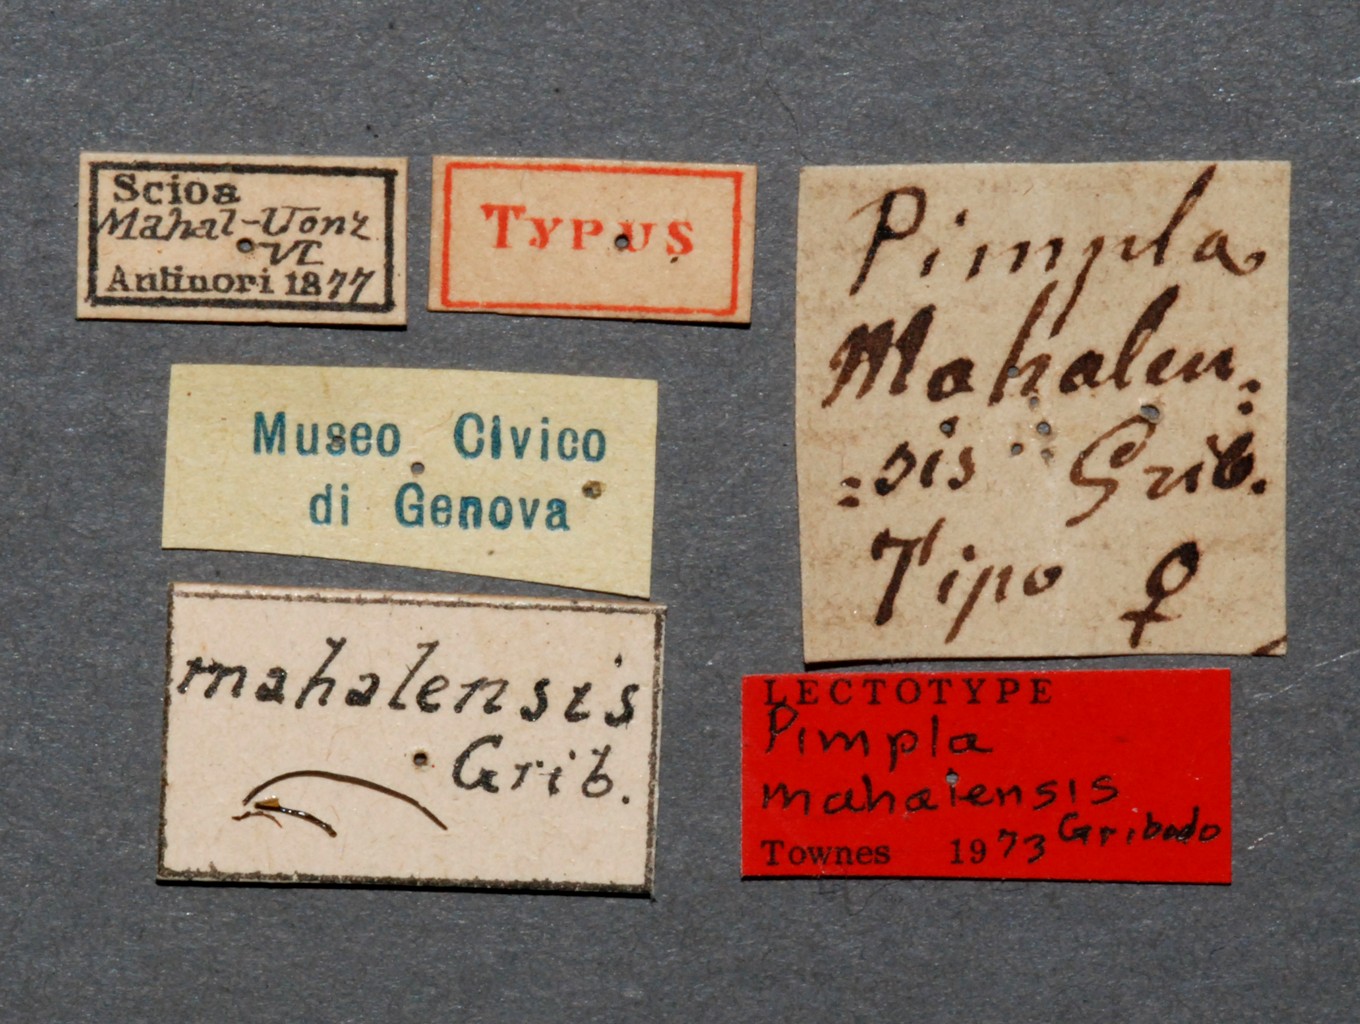 Scioa
Mahal-Uonz
VI
Antinori 1877
TYPUS
Pimpla
Mahalen:
:sis Grib.
Tipo ♀
Museo Civico
di Genova
mahalensis
Grib.
LECTOTYPE
Pimpla
mahalensis
Gribodo
Townes 1973